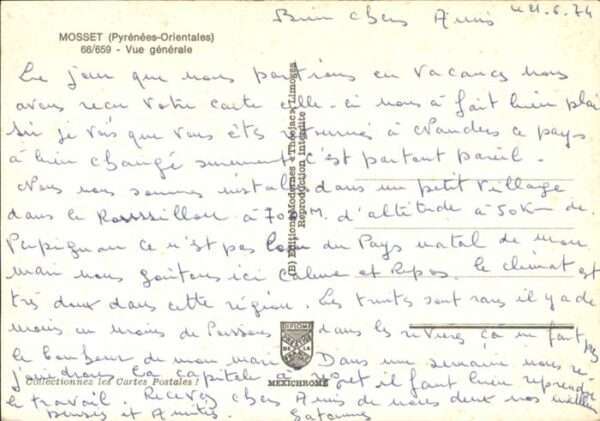 Bien chers Amis
MOSSET (Pyrénées-Orientales)
66/659 - Vue générale
Le jour que nous partions en vacances nous
avons reçu votre carte celle-ci nous à fait bien plai
sir je vois que vous êtes retournés à ce pays
à bien changé surement c'est partout pareil.
Nous nous sommes installés dans un petit village
dans le Roussillon à 700 M. d'altitude à 50 km de
Perpignan ce n'est pas loin du Pays natal de mon
mari nous goutons ici Calme et Repos. le climat est
très doux dans cette région. Les truites sont rares il y a de
moins en moins de Poissons dans les rivières ça ne fait pas
le bonheur de mon mari. Dans une semaine nous re
joindrons la capitale et il faut bien reprendre
le travail. Recevez chers Amis de nous deux nos meilleurs
Pensées et Amitiés.
(B) Editions Modernes « Théojac » Limoges
Reproduction Interdite
Collectionnez les Cartes Postales !
MEXICHROME